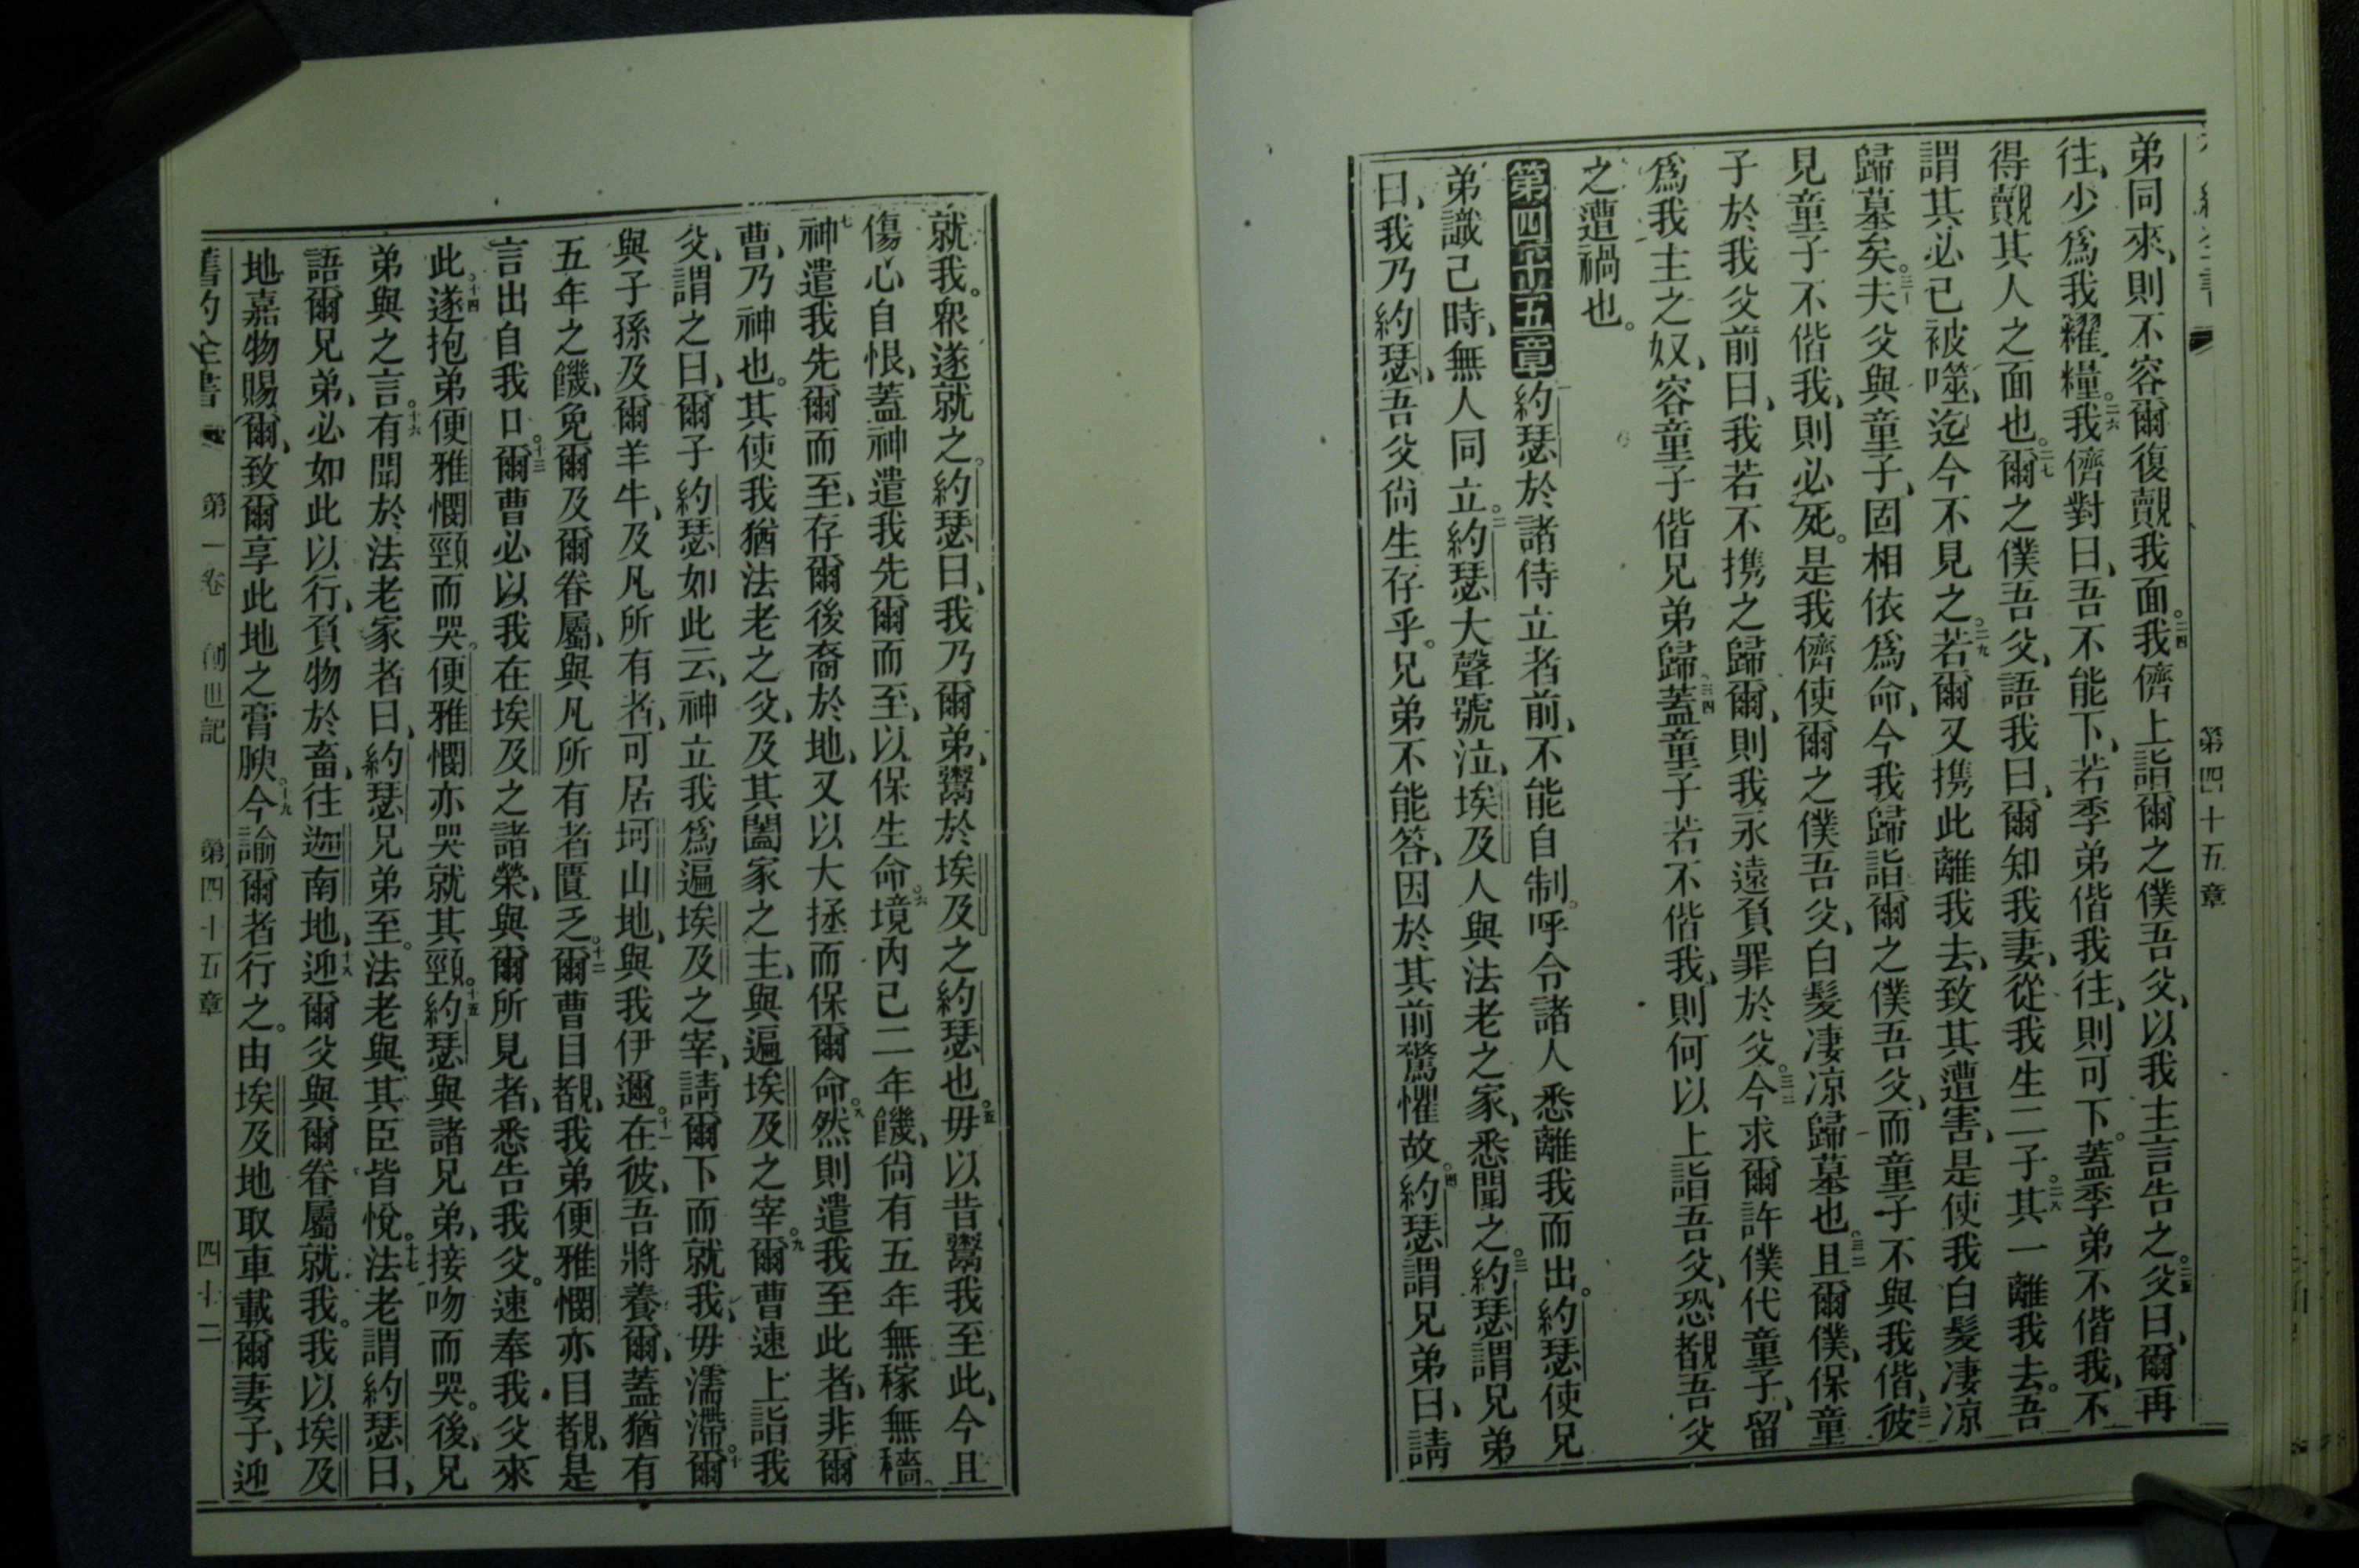 第四十五章
弟同來、則不容爾復覿我面。二四我儕上詣爾之僕吾父、以我主言告之。二五父曰、爾再
往、少爲我糴糧。二六我儕對曰、吾不能下、若季弟偕我往、則可下。蓋季弟不偕我、不
得覿其人之面也。二七爾之僕吾父、語我曰、爾知我妻、從我生二子。二八其一離我去。吾
謂其必已被噬、迄今不見之。二九若爾又携此離我去、致其遭害、是使我白髮凄凉
歸墓矣。三十夫父與童子、固相依爲命、今我歸詣爾之僕吾父、而童子不與我偕、三一彼
見童子不偕我、則必死。是我儕使爾之僕吾父、白髮凄凉歸墓也。三二且爾僕、保童
子於我父前曰、我若不携之歸爾、則我永遠負罪於父。三三今求爾許僕代童子、留
爲我主之奴、容童子偕兄弟歸。三四蓋童子若不偕我、則何以上詣吾父、恐覩吾父
之遭禍也。
第四十五章 約瑟於諸侍立者前、不能自制。呼令諸人悉離我而出。約瑟使兄
弟識己時、無人同立。二約瑟大聲號泣、埃及人與法老之家、悉聞之。三約瑟謂兄弟
曰、我乃約瑟、吾父尙生存乎。兄弟不能答、因於其前驚懼故。四約瑟謂兄弟曰、請
就我。衆遂就之。約瑟曰、我乃爾弟、鬻於埃及之約瑟也。五毋以昔鬻我至此、今且
傷心自恨、蓋神遣我先爾而至、以保生命。六境內已二年饑、尙有五年無稼無穡。
七神遣我先爾而至、存爾後裔於地、又以大拯而保爾命。八然則遣我至此者、非爾
曹、乃神也。其使我猶法老之父、及其闔家之主、與遍埃及之宰。九爾曹速上詣我
父、謂之曰、爾子約瑟如此云、神立我爲遍埃及之宰、請爾下而就我、毋濡滯。十爾
與子孫及爾羊牛、及凡所有者、可居坷山地、與我伊邇。十一在彼、吾將養爾、蓋猶有
五年之饑、免爾及爾眷屬、與凡所有者匱乏。十二爾曹目覩、我弟便雅憫亦目覩、是
言出自我口。十三爾曹必以我在埃及之諸榮、與爾所見者、悉告我父。速奉我父來
此。十四遂抱弟便雅憫頸而哭。便雅憫亦哭就其頸。十五約瑟與諸兄弟、接吻而哭。後、兄
弟與之言。十六有聞於法老家者曰、約瑟兄弟至。法老與其臣皆悅。十七法老謂約瑟曰、
語爾兄弟、必如此以行、負物於畜、往迦南地、十八迎爾父與爾眷屬就我。我以埃及
地嘉物賜爾、致爾享此地之膏腴。十九今諭爾者行之。由埃及地取車載爾妻子、迎
舊約全書 第一卷 創世記 第四十五章 四十二